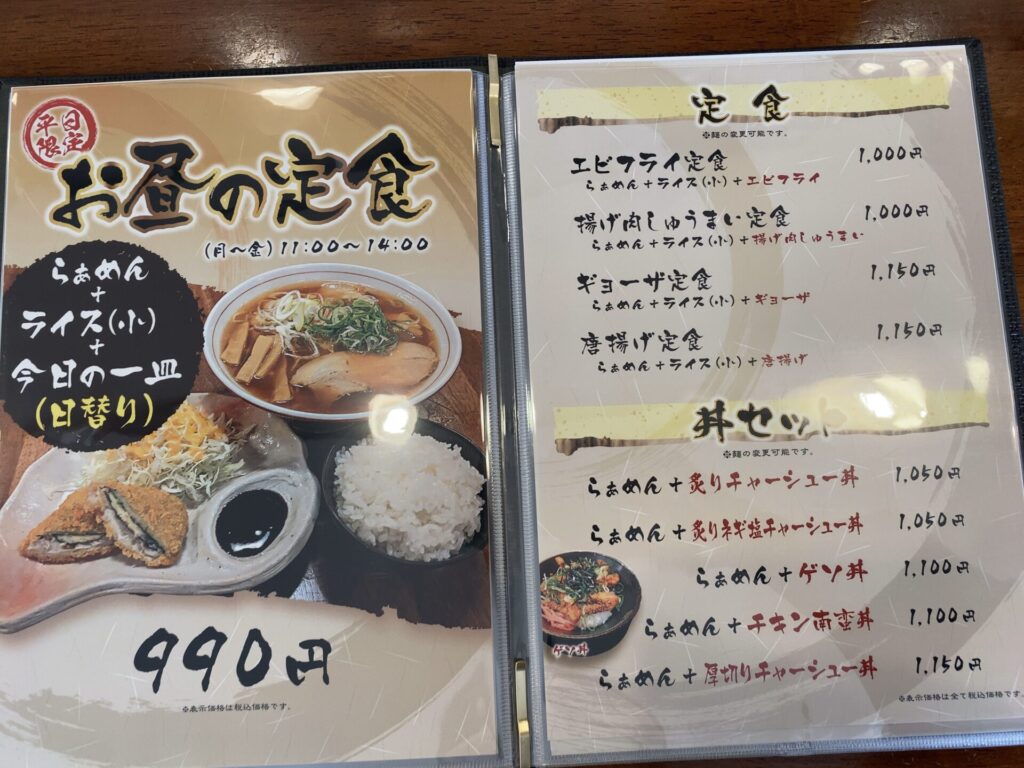 平日限定
お昼の定食
(月～金)11:00～14:00
らぁめん
+
ライス(小)
+
今日の一皿
(日替り)
990円
※表示価格は税込価格です。
定食
※麺の変更可能です。
エビフライ定食 1,000円
らぁめん+ライス(小)+エビフライ
揚げ肉しゅうまい定食 1,000円
らぁめん+ライス(小)+揚げ肉しゅうまい
ギョーザ定食 1,150円
らぁめん+ライス(小)+ギョーザ
唐揚げ定食 1,150円
らぁめん+ライス(小)+唐揚げ
丼セット
※麺の変更可能です。
らぁめん+炙りチャーシュー丼 1,050円
らぁめん+炙りネギ塩チャーシュー丼 1,050円
らぁめん+ゲソ丼 1,100円
らぁめん+チキン南蛮丼 1,100円
らぁめん+厚切りチャーシュー丼 1,150円
ゲソ丼
※表示価格は全て税込価格です。